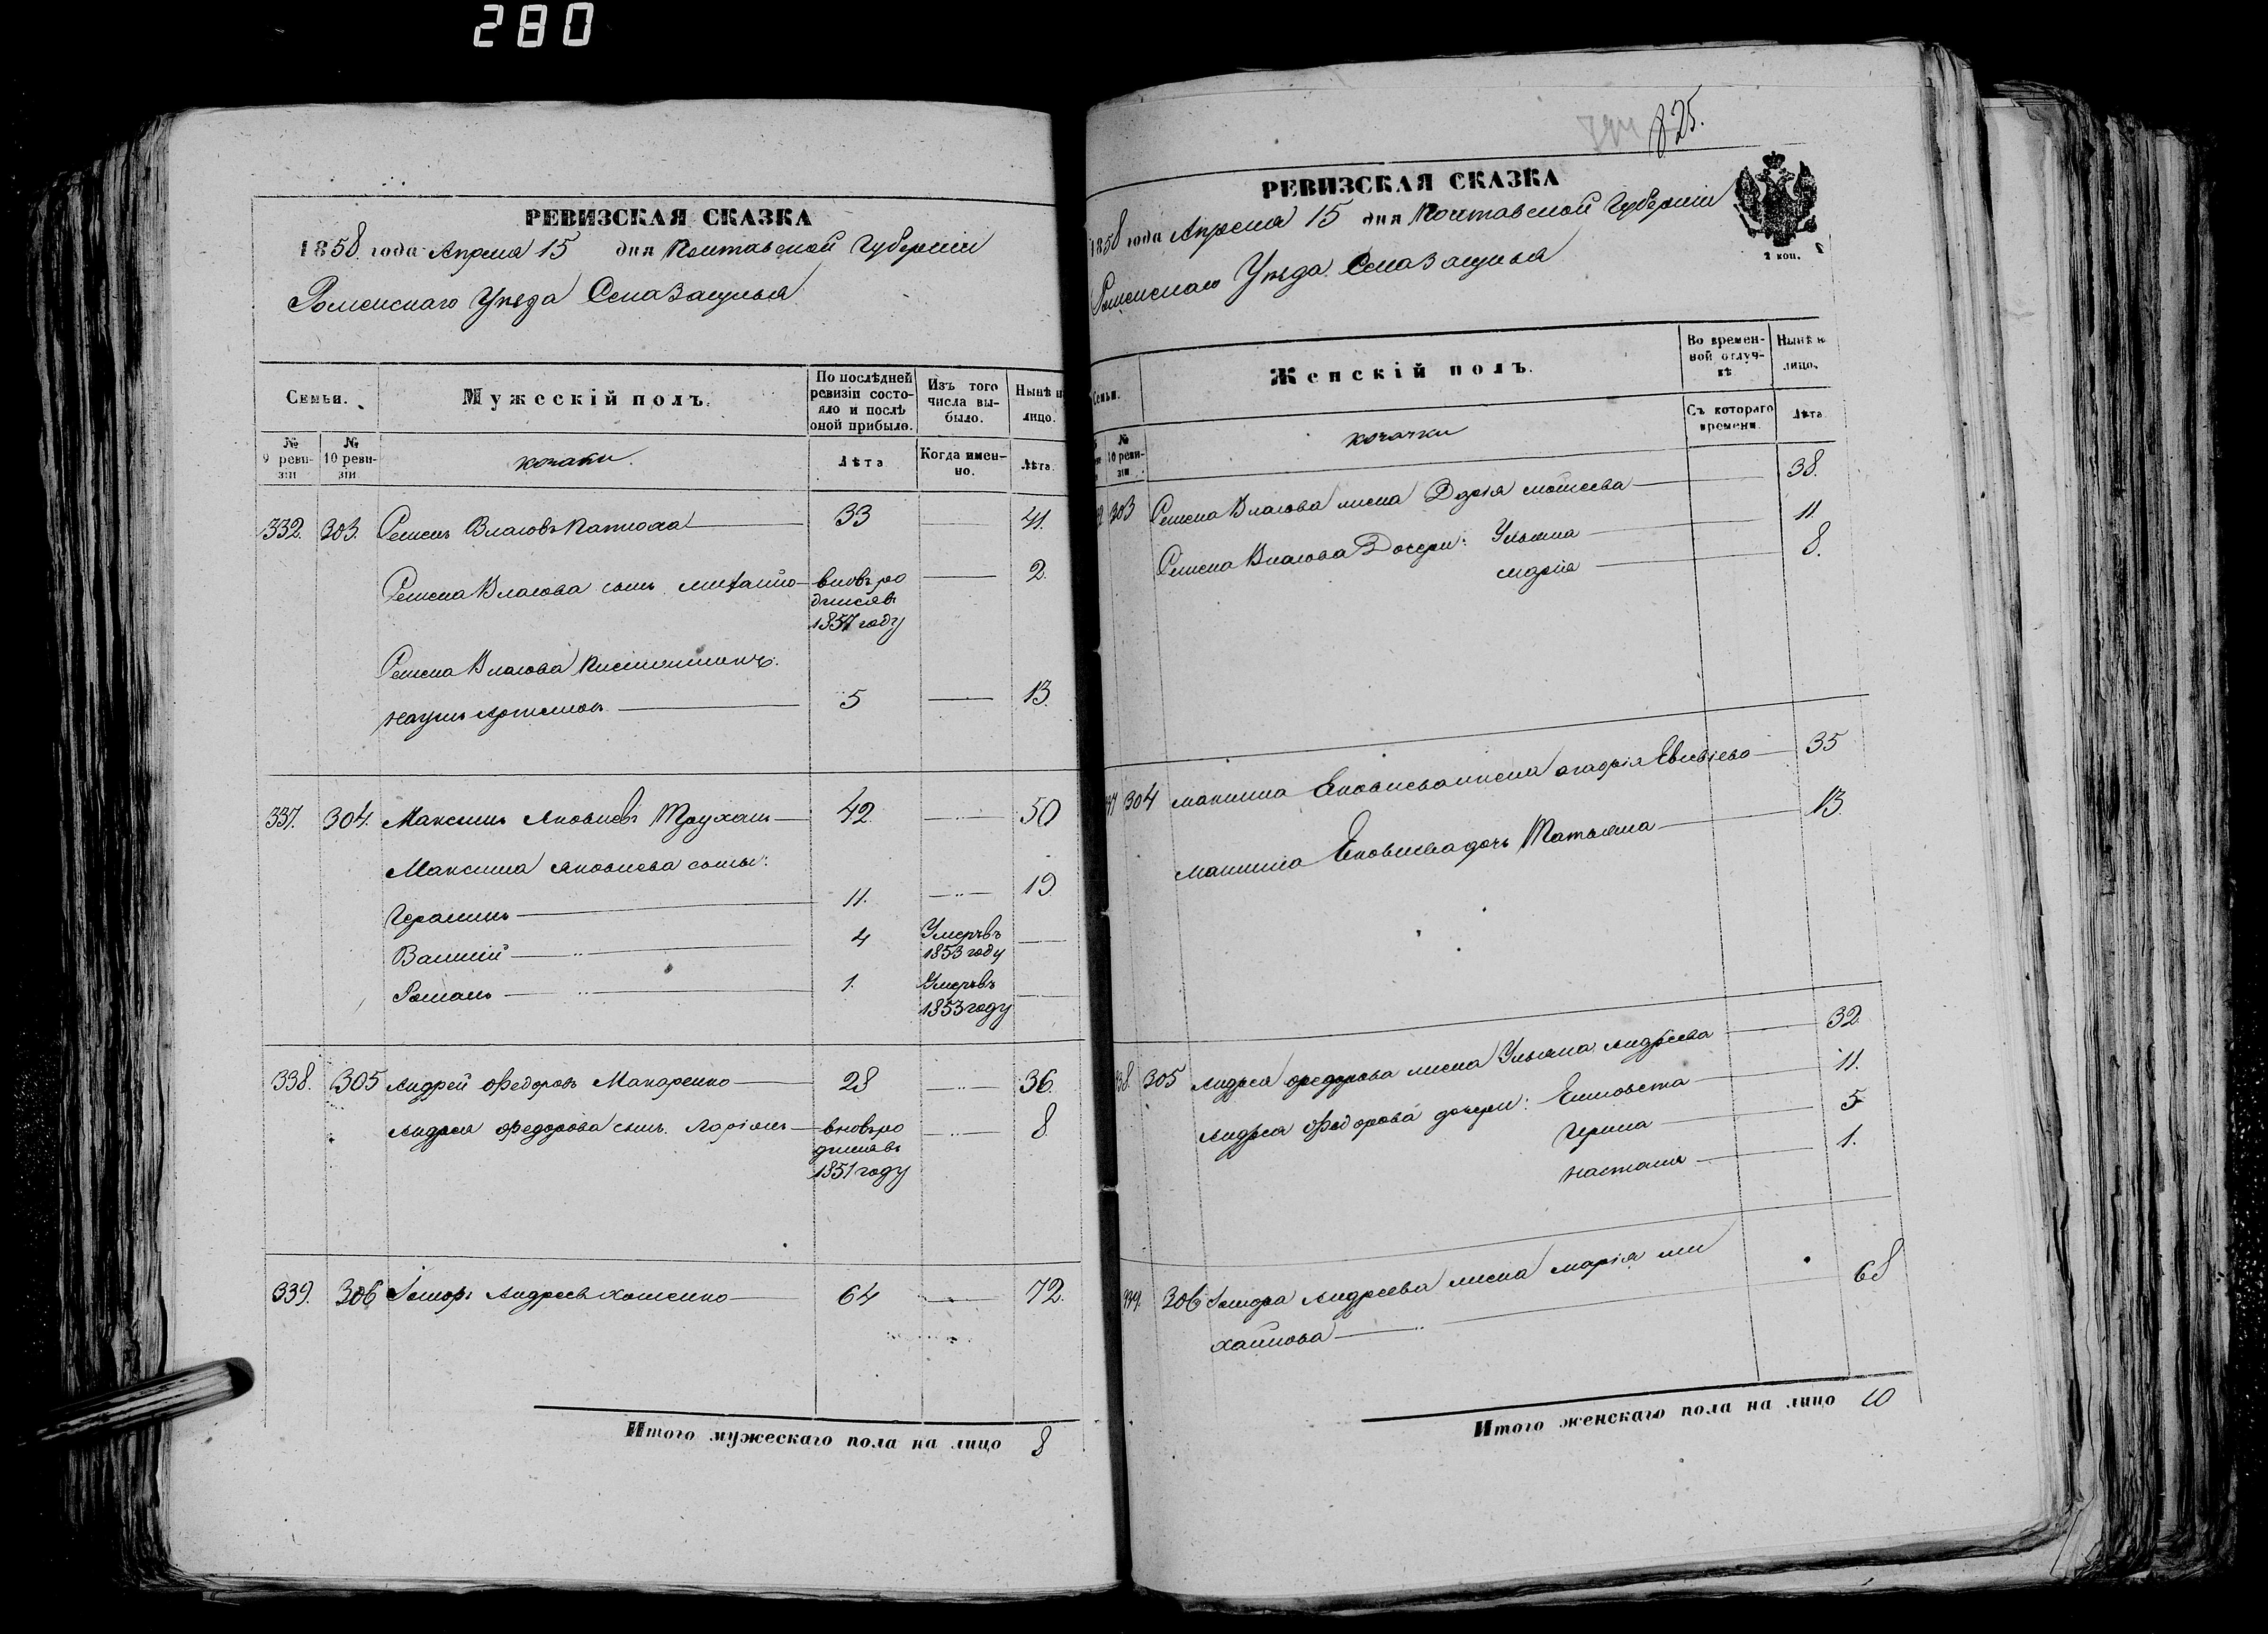 280
РЕВИЗСКАЯ СКАЗКА
1858 года Апреля 15 дня Полтавской Губернии
Роменскаго Уѣзда Села Засулья
Семьи.
Мужескій полъ.
По послѣдней ревизіи состо-
яло и послѣ
оной прибыло.
Изъ того
числа вы-
было.
Нынѣ н
лицо.
№
9 реви-
зіи
№
10 реви-
зіи
козаки.
Лѣта
Когда имен-
но.
Лѣта.
332. 303. Семенъ Власовъ 33 41.
Семена Власова сынъ Михайло вновь ро 2.
дился въ
1857 году
Семена Власова
Наумъ Артемовъ 5 13.
337. 304. Максимъ Яковлевъ Труханъ 42. 50
Максима Яковлева сыны:
Герасимъ 11. 19
Василій 4 Умеръ въ
1853 году
Романъ 1. Умеръ въ
1853 году
338. 305 Андрей Федоровъ Макаренко 28 36.
Андрея Федорова сынъ Ларіонъ вновь ро 8
дился въ
1851 году
339. 306 Андреевъ Хоменко 64 72.
Итого мужескаго пола на лицо 8
825.
РЕВИЗСКАЯ СКАЗКА
1858 года Апреля 15 дня Полтавской Губернии
Роменскаго Уѣзда Села Засулья
2 коп.
Семьи.
Женскій полъ.
Во времен-
ной отлуч-
кѣ
Нынѣ н
лицо.
№
10 реви-
зіи
козачки
Съ котораго
времени.
Лѣта.
303 Семена Власова жена Дарія Моисеева 38.
Семена Власова Дочери: Ульяна 11.
Марія 8.
304 Максима Яковлева жена Агафія Евсѣіева 35
Максима Яковлева дочь Татьяна 13.
38. 305 Андрея Федорова жена Ульяна Андреева 32
Андрея Федорова дочери: Елисовета 11.
Ирина 5
Настасія 1.
339. 306 Андреева жена Марія Ми 68
хайлова
Итого женскаго пола на лицо 10